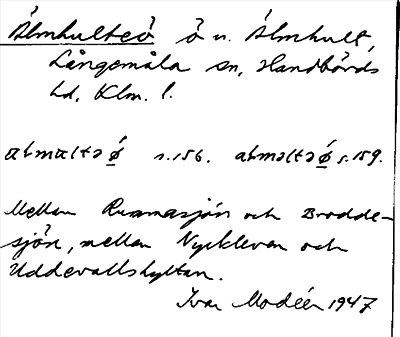 Älmhulteö ö u. Älmhult,
Långemåla sn, Handbörds
hd, Klm. l.
almaltə ǿ s.156. almaltə ǿ s.159.
Mellan Rummasjön och Brodde-
sjön, mellan Nyckleven och
Uddevallshyltan.
Ivar Modéer 1947